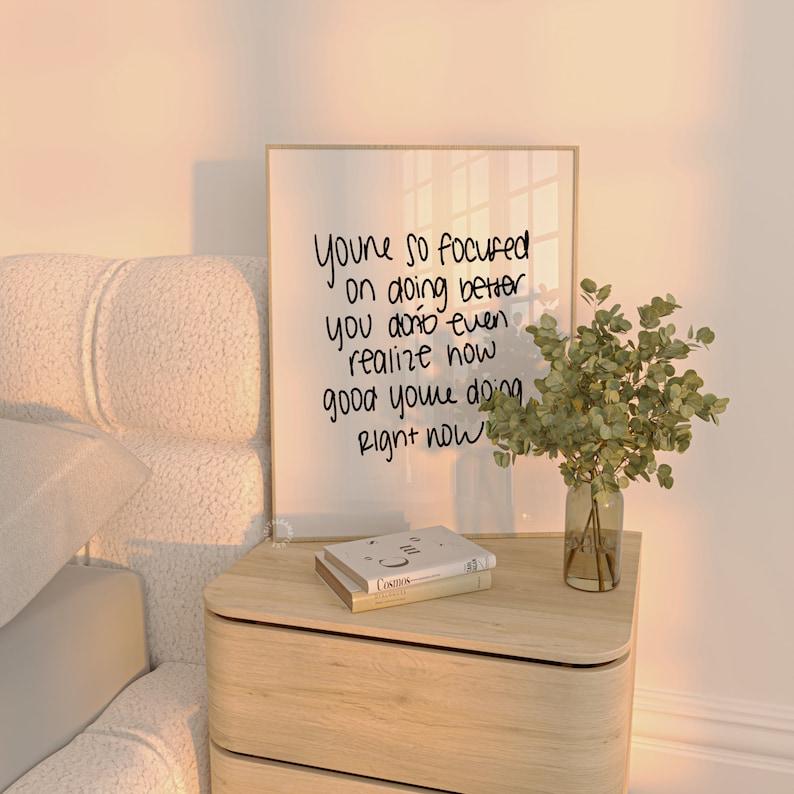 you're so focused
on doing better
you don't even
realize how
good you're doing
right now
Cosmos
DIALOGUES